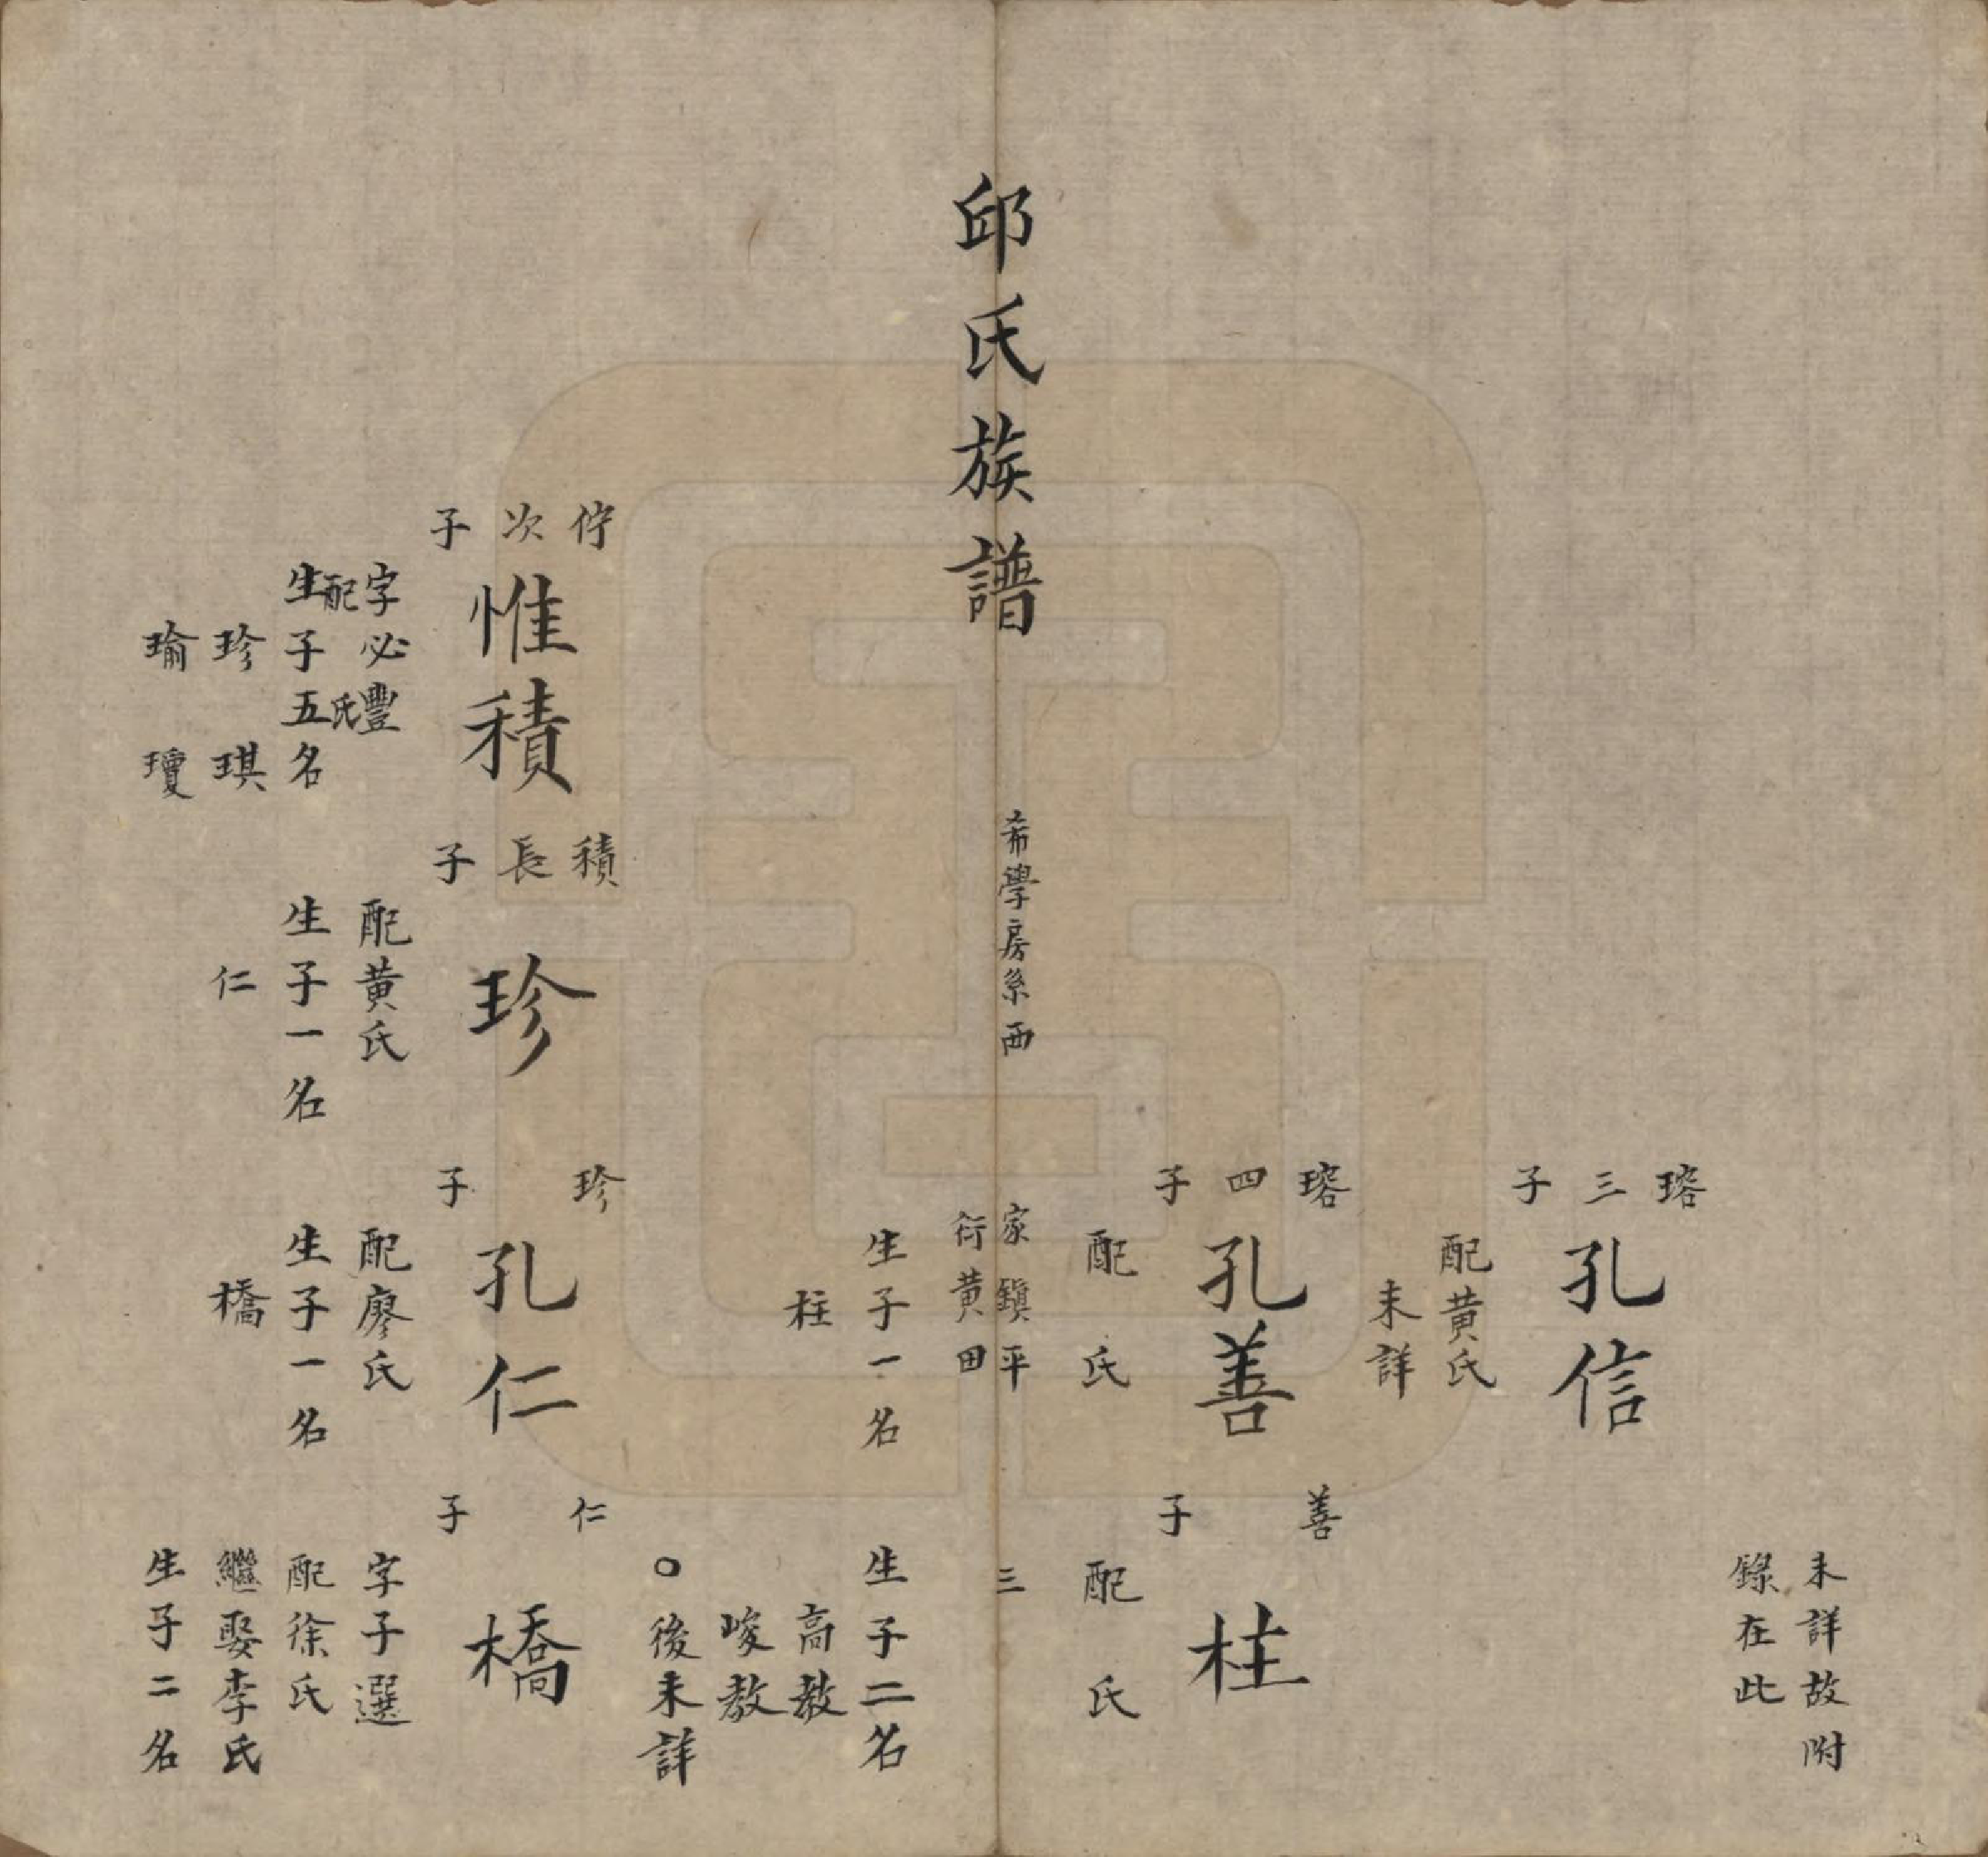 未詳故附
錄在此
瑢三子
孔信
配黄氏
未詳
瑢四子
孔善
配　氏
生子一名
柱
善子
柱
配　氏
生子二名
高教
峻教
○後未詳
邱氏族譜
希學房系西
家鎮平
衍黄田
三
佇次子
惟積
字必豐
配　氏
生子五名
珍　琪
瑜　瓊
積長子
珍
配黄氏
生子一名
仁
珍子
孔仁
配廖氏
生子一名
橋
仁子
橋
字子選
配徐氏
繼娶李氏
生子二名